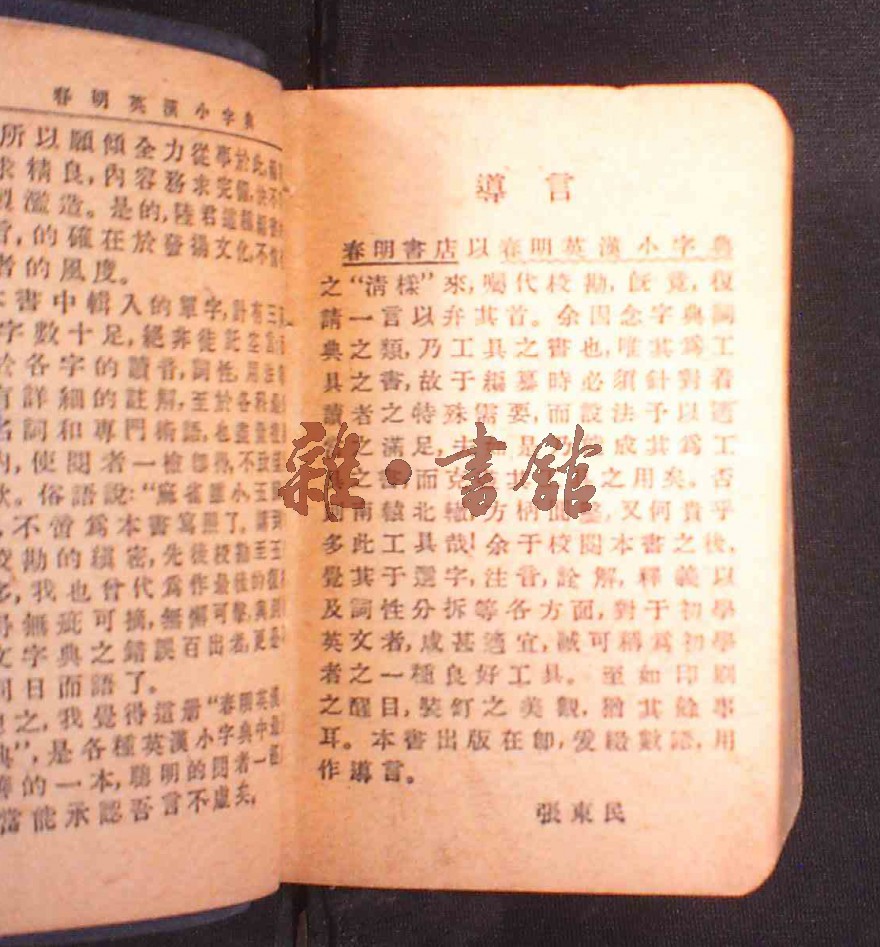 春明英漢小字典
所以願傾全力從事於此,
求精良,內容務求完備,
濫造。是的,陸君這
,的確在於發揚文化,不
者的風度。
書中輯入的單字,計有三
字數十足,絕非徒託空言
於各字的讀音,詞性,用法
有詳細的註解,至於各科
名詞和專門術語,也盡量
內,使閱者一檢即得,不致
。俗語說:“麻雀雖小,五
,不啻爲本書寫照了。講到
校勘的縝密,先後校勘至五
多,我也曾代爲作最後的復
無疵可摘,無懈可擊,與
文字典之錯誤百出者,更
同日而語了。
之,我覺得這册“春明英漢
典”,是各種英漢小字典中最
的一本,聰明的閱者一
當能承認吾言不虛矣。
導言
春明書店以春明英漢小字典
之“清樣”來,囑代校勘,旣竟,復
請一言以弁其首。余因念字典詞
典之類,乃工具之書也,唯其爲工
具之書,故于編纂時必須針對着
讀者之特殊需要,而設法予以適
之滿足,是乃成其爲工
之書,而克之用矣。否
則南轅北轍,方枘圓鑿,又何貴乎
多此工具哉!余于校閱本書之後,
覺其于選字,注音,詮解,釋義以
及詞性分拆等各方面,對于初學
英文者,咸甚適宜,誠可稱爲初學
者之一種良好工具。至如印刷
之醒目,裝釘之美觀,猶其餘事
耳。本書出版在卽,爰綴數語,用
作導言。
張東民
雜·書館